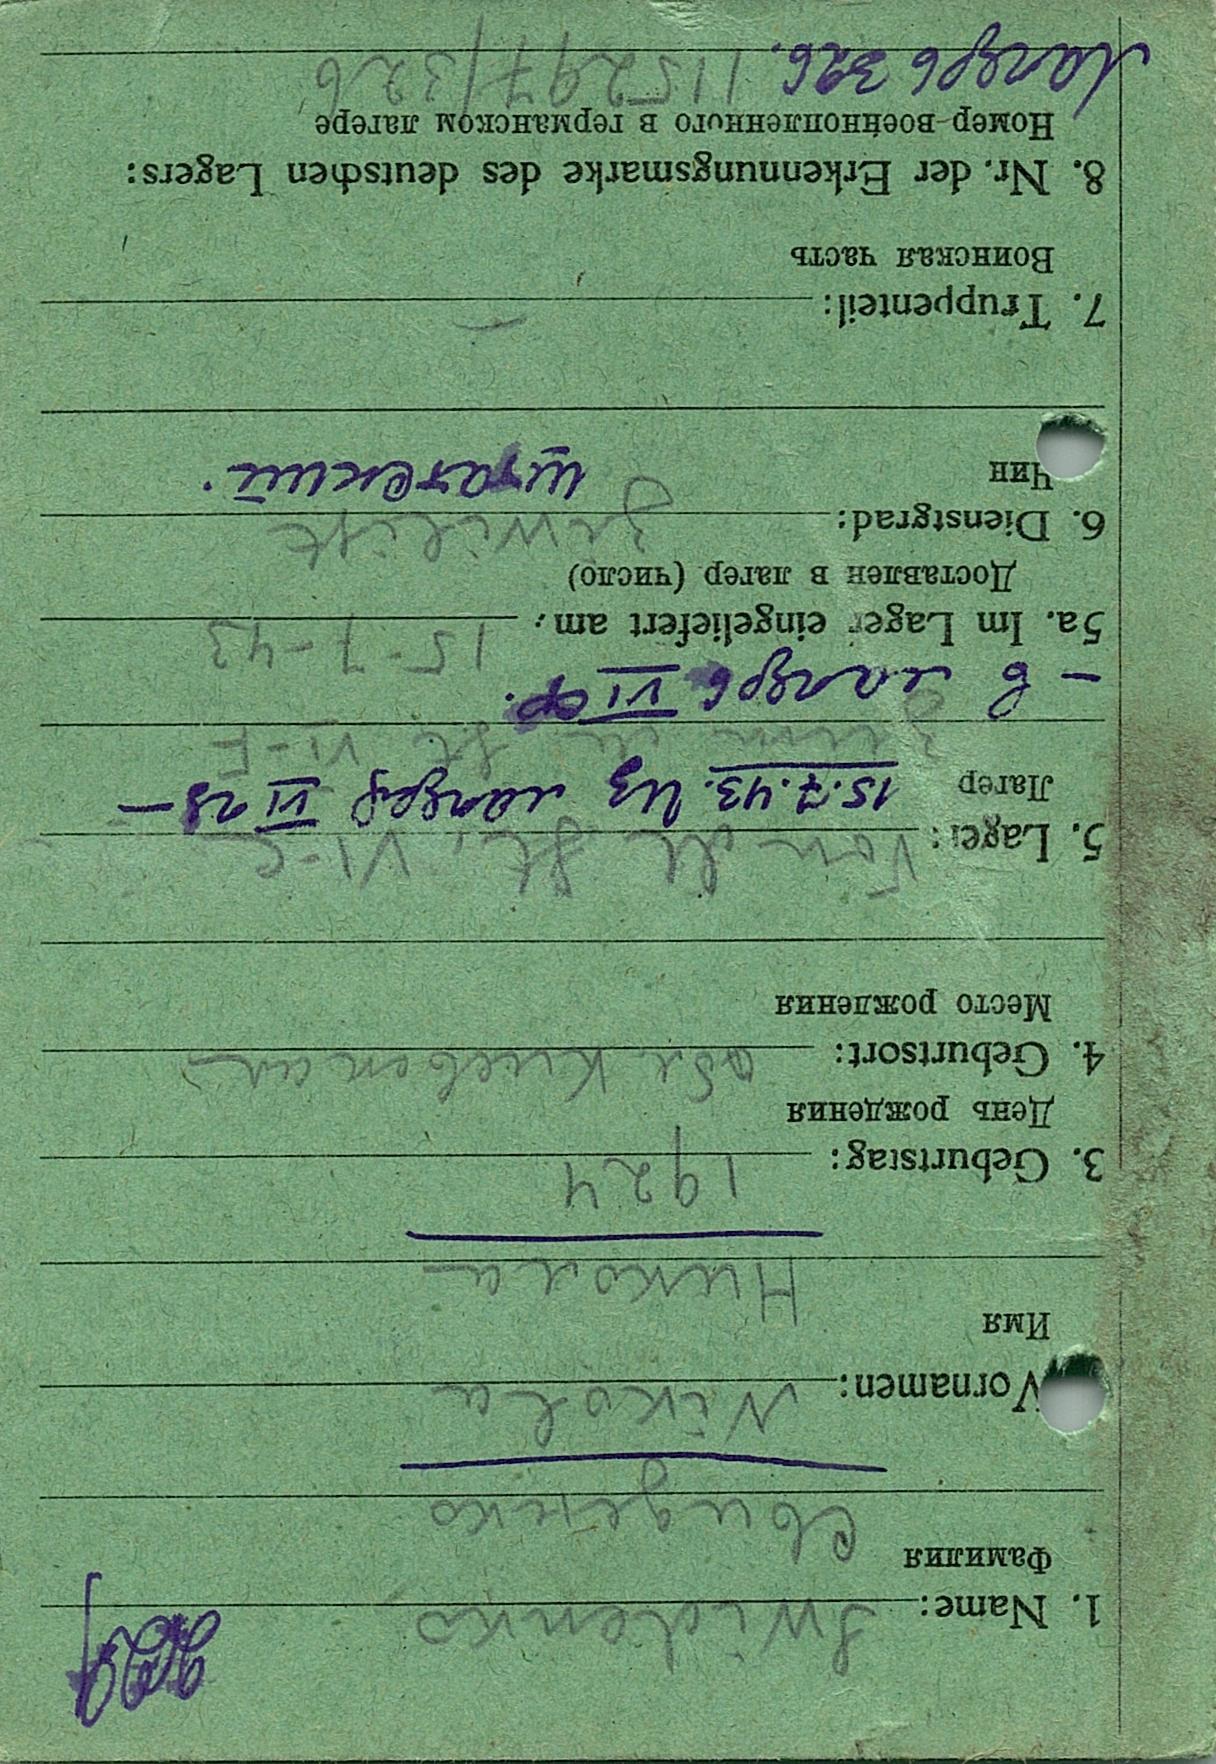 1. Name: Swidenko
Фамилия
Свиденко
Vornamen: Nikola
Имя
Никола
3. Geburtstag: 1924
День рождения
4. Geburtsort: обл.
Место рождения
5. Lager: Von St. VI-C
Лагерь 15.7.43. Из лагеря VI
zum St VI-F
– в лагерь VI ф.
5a. Im Lager eingeliefert am: 15-7-43
Доставлен в лагерь (число)
6. Dienstgrad: Zewilist
Чин штатский.
7. Truppenteil: —
Воинская часть
8. Nr. der Erkennungsmarke des deutschen Lagers:
Номер военнопленного в германском лагере
115297/326
Лагерь 326.